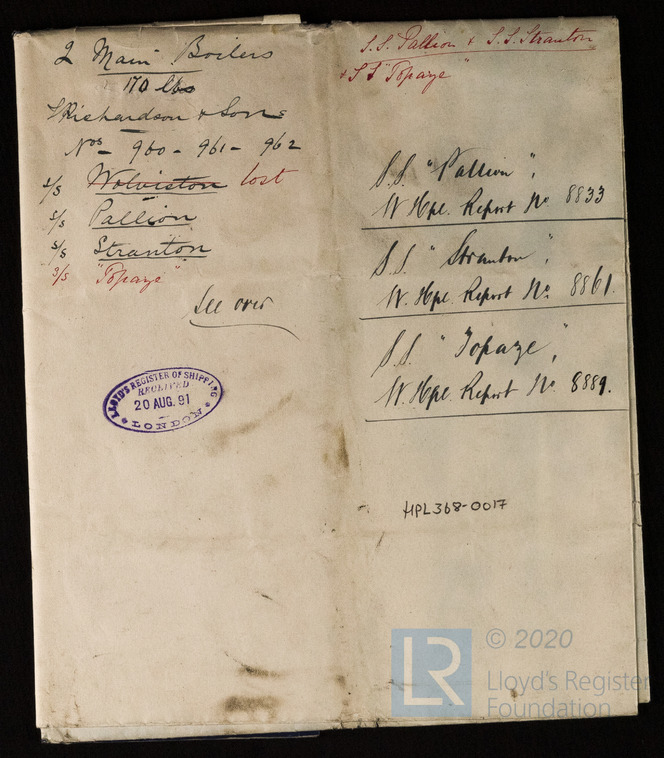 2 Main Boilers
170 lbs
T Richardson & Sons
Nos 960 - 961 - 962
s/s Wolviston lost
s/s Pallion
s/s Stranton
s/s "Topaze"
See over
LLOYD'S REGISTER OF SHIPPING
RECEIVED
20 AUG. 91
LONDON
S.S. Pallion & S.S. Stranton
& S S "Topaze"
S.S. "Pallion",
W. Hpl. Report No 8833
S.S. "Stranton",
W. Hpl. Report No. 8861.
S.S. "Topaze",
W. Hpl. Report No. 8889.
HPL368-0017
LR
© 2020
Lloyd's Register
Foundation